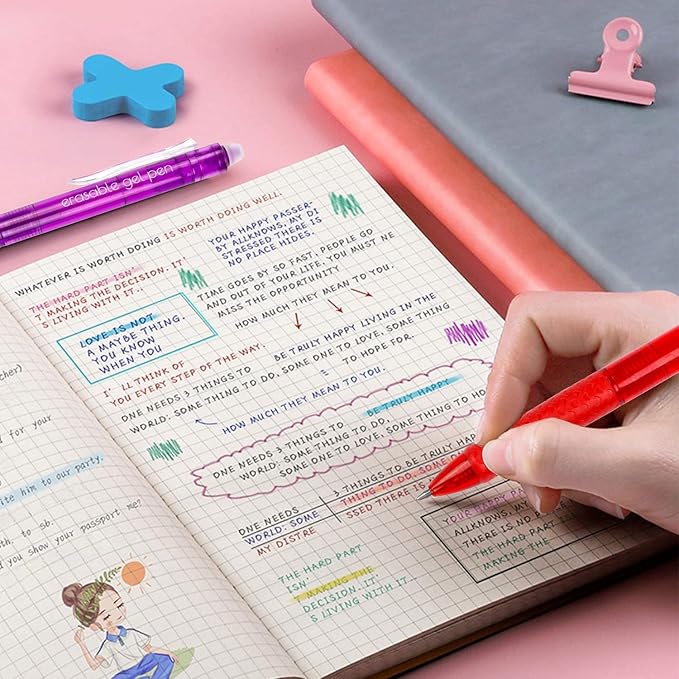 erasable gel pen
cher)
d for your
rite him to our party.
th. to sb.
d you show your passport me?
WHATEVER IS WORTH DOING IS WORTH DOING WELL.
THE HARD PART ISN'
T MAKING THE DECISION. IT'
S LIVING WITH IT..
YOUR HAPPY PASSER-
BY ALLKNOWS, MY DI
STRESSED THERE IS
NO PLACE HIDES.
LOVE IS NOT
A MAYBE THING.
YOU KNOW
WHEN YOU
TIME GOES BY SO FAST, PEOPLE GO
AND OUT OF YOUR LIFE. YOU MUST NE
MISS THE OPPORTUNITY
HOW MUCH THEY MEAN TO YOU.
I' LL THINK OF
YOU EVERY STEP OF THE WAY.
BE TRULY HAPPY LIVING IN THE
ONE NEEDS 3 THINGS TO
WORLD: SOME THING TO DO, SOME ONE TO LOVE, SOME THING
TO HOPE FOR.
HOW MUCH THEY MEAN TO YOU.
BE TRULY HAPPY
ONE NEEDS 3 THINGS TO
WORLD: SOME THING TO DO,
SOME ONE TO LOVE, SOME THING TO HO
ONE NEEDS
WORLD: SOME
MY DISTRE
3 THINGS TO BE TRULY HAPPY
THING TO DO, SOME ON
SSED THERE IS
YOUR HAPPY PASSE
ALLKNOWS, MY D
THERE IS NO PLA
THE HARD PART
MAKING THE
THE HARD PART
ISN'
T MAKING THE
DECISION. IT'
S LIVING WITH IT..